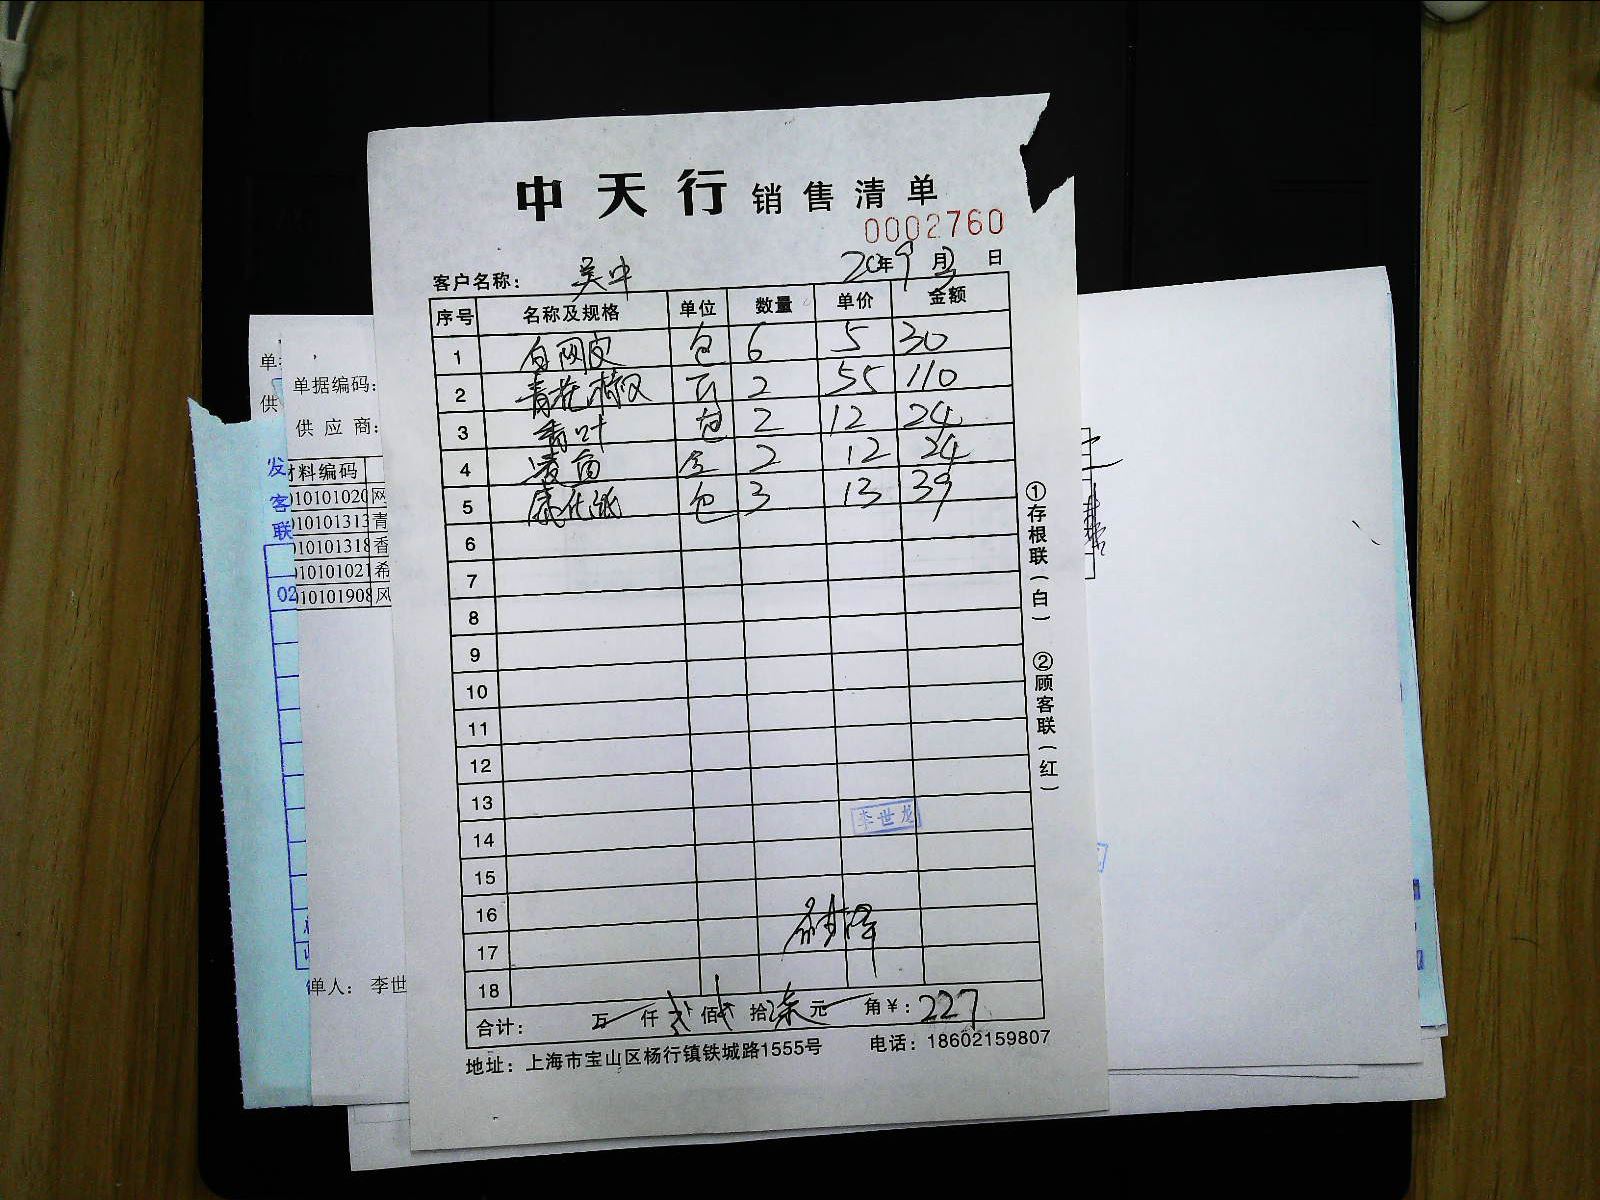 中天行 销售清单
0002760
客户名称： 吴中 20年9月 日
序号 名称及规格 单位 数量 单价 金额
1 白网皮 包 6 5 30
2 青花椒 2 55 110
3 香叶 包 2 12 24
4 盒 2 12 24
5 包 3 13 39
6
7
8
9
10
11
12
13
14
15
16
17
18
李世龙
合计： 万 仟 贰 佰 贰 拾 柒 元 角 ¥：227
地址：上海市宝山区杨行镇铁城路1555号 电话：18602159807
①存根联（白） ②顾客联（红）
单据编码：
供 应 商：
材料编码
010101020 网
010101313 青
010101318 香
010101021 希
010101908 风
单人： 李世
发客联
02